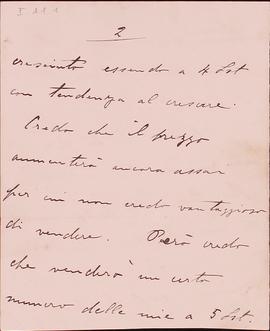 I 11 1
2
cresciuto essendo a 4 Lst
con tendenza al crescere.
Credo che il prezzo
aumenterà ancora assai
per cui non credo vantaggioso
di vendere. Però credo
che venderò un certo
numero delle mie a 5 Lst.